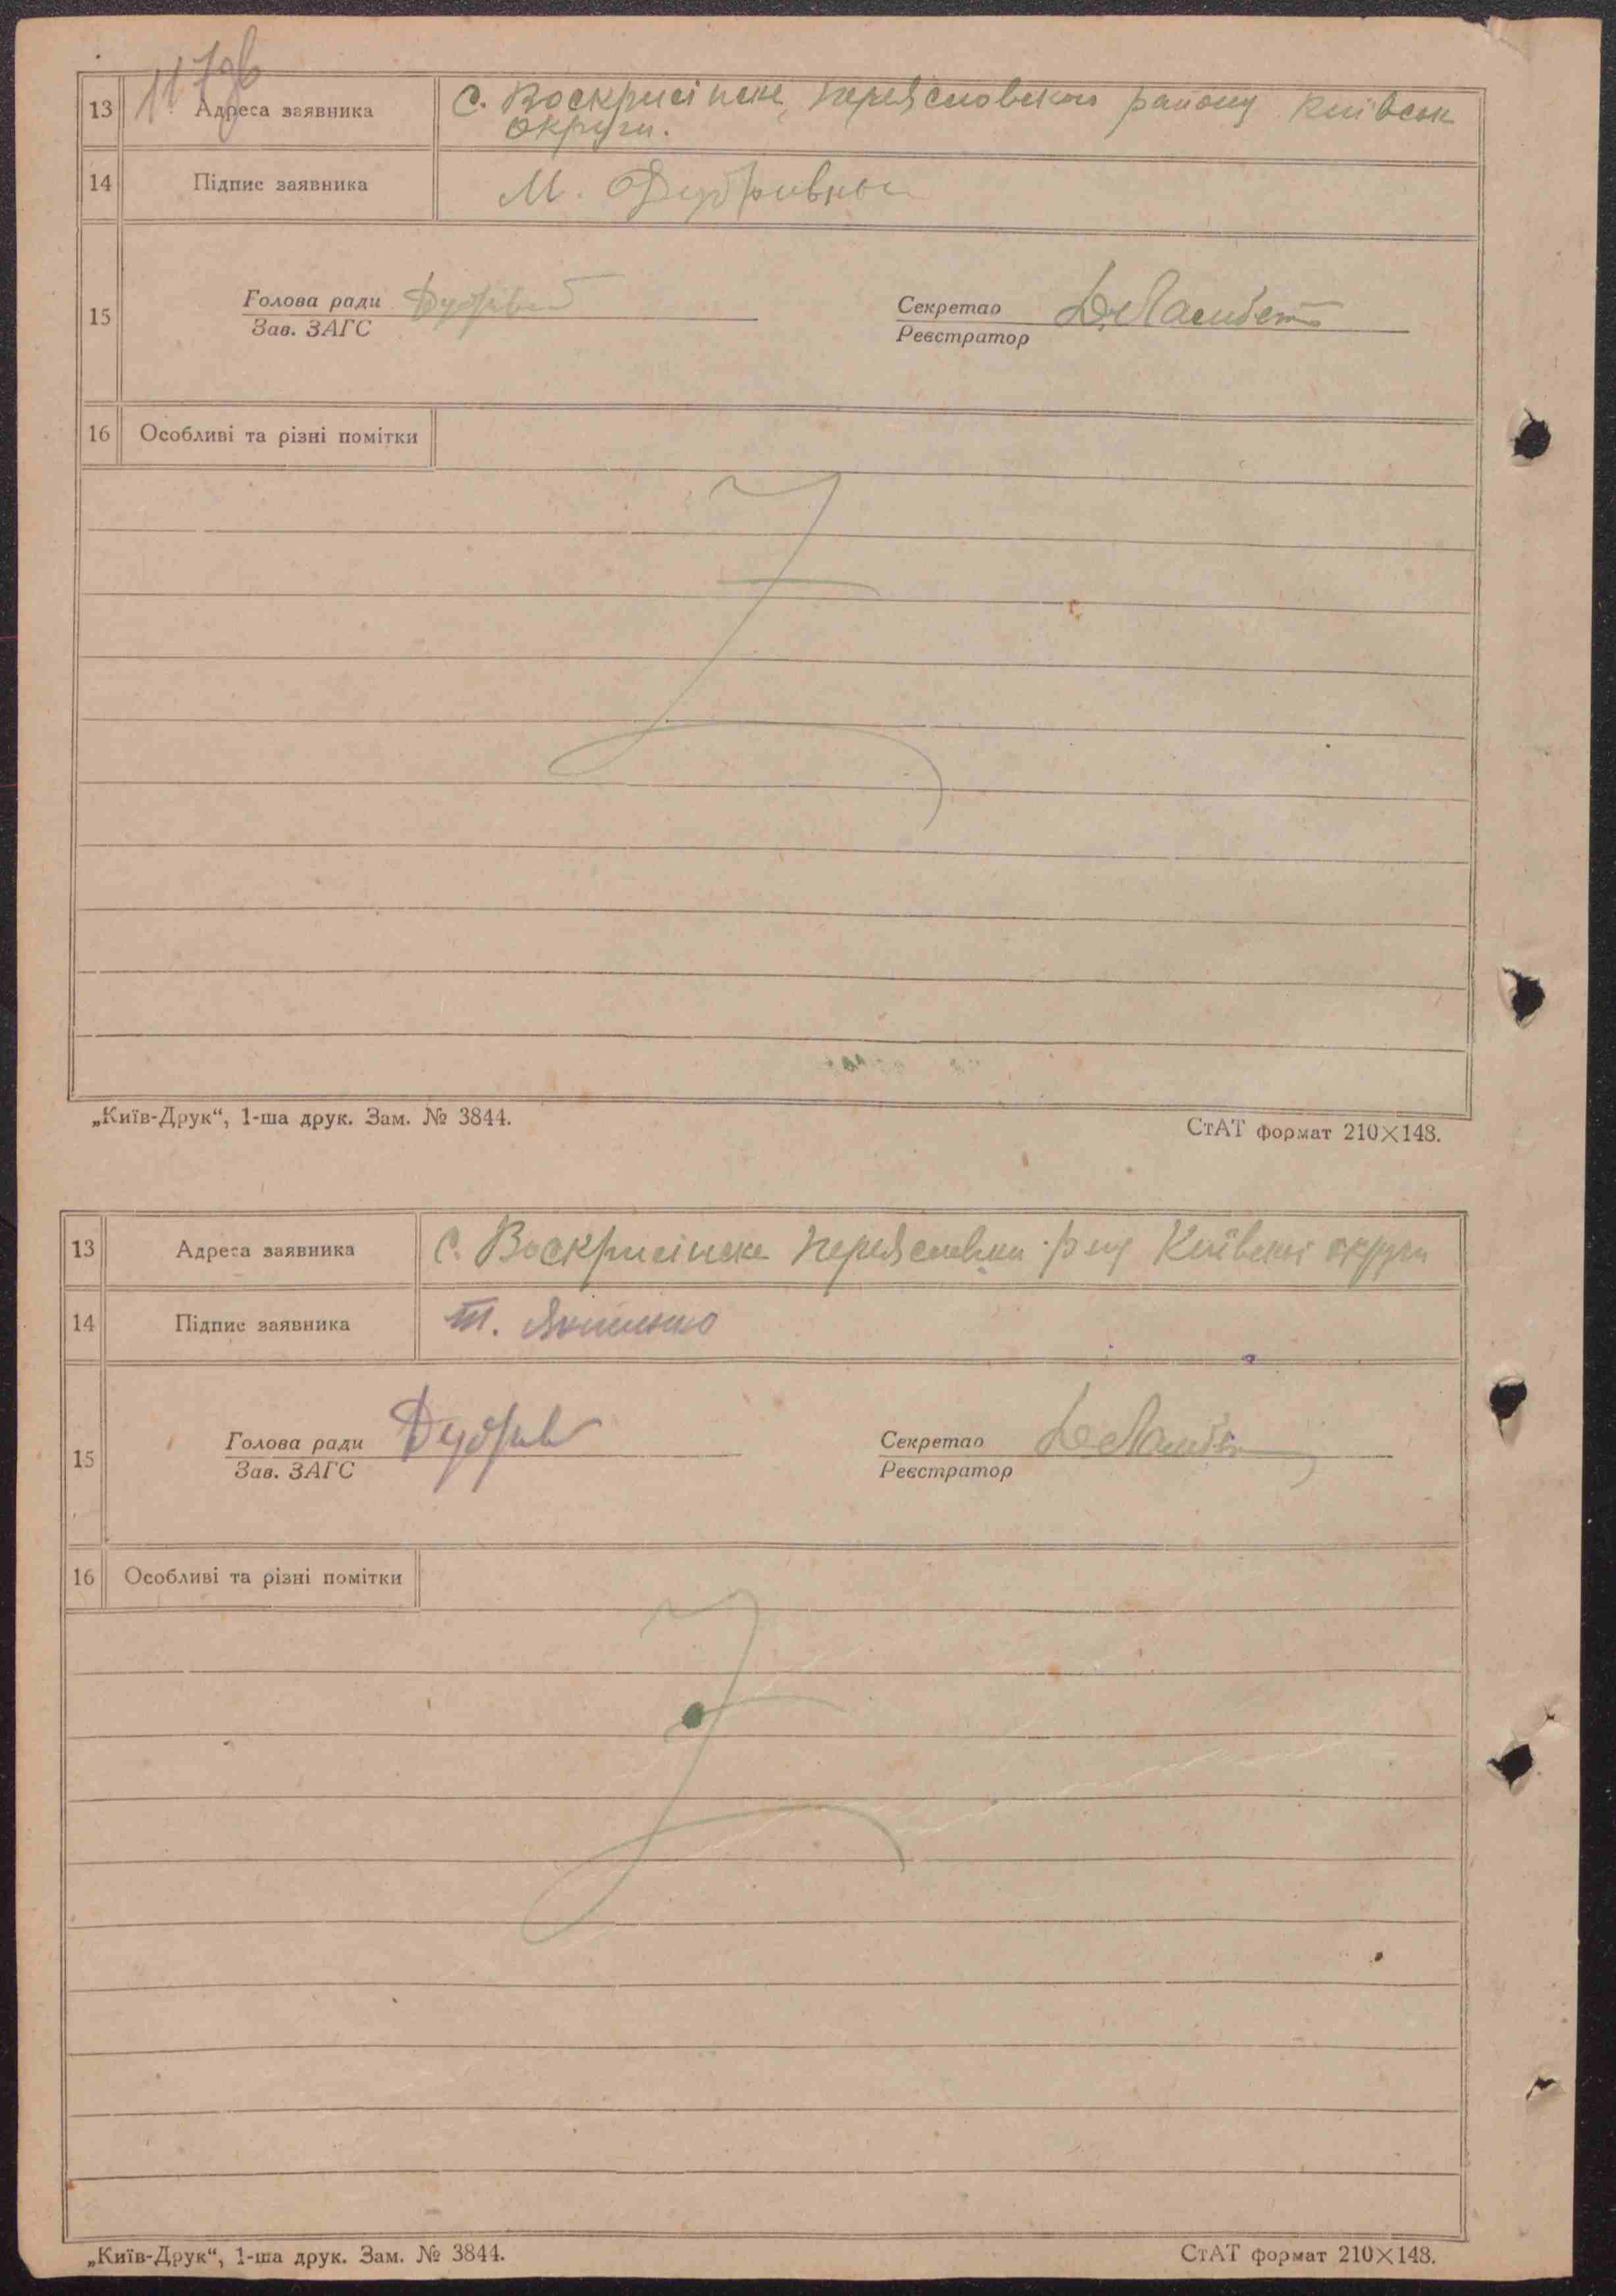 117зв
13 Адреса заявника С. Воскрисінске, Переясловского району Київськ
округи.
14 Підпис заявника М. Дубровном
15 Голова ради Секретар
Зав. ЗАГС Реєстратор
16 Особливі та різні помітки
„Київ-Друк“, 1-ша друк. Зам. № 3844. СтАТ формат 210×148.
13 Адреса заявника С. Воскрисінске Переяславськ р-ну Київської округи
14 Підпис заявника Т. Якименко
15 Голова ради Секретар
Зав. ЗАГС Реєстратор
16 Особливі та різні помітки
„Київ-Друк“, 1-ша друк. Зам. № 3844. СтАТ формат 210×148.